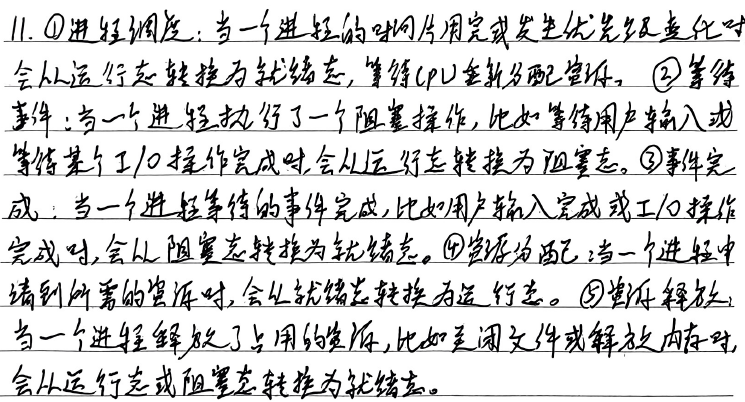 11. ①进程调度：当一个进程的时间片用完或发生优先级变化时
会从运行态转换为就绪态，等待CPU重新分配资源。②等待
事件：当一个进程执行了一个阻塞操作，比如等待用户输入或
等待某个I/O操作完成时，会从运行态转换为阻塞态。③事件完
成：当一个进程等待的事件完成，比如用户输入完成或I/O操作
完成时，会从阻塞态转换为就绪态。④资源分配：当一个进程申
请到所需的资源时，会从就绪态转换为运行态。⑤资源释放：
当一个进程释放了占用的资源，比如关闭文件或释放内存时，
会从运行态或阻塞态转换为就绪态。